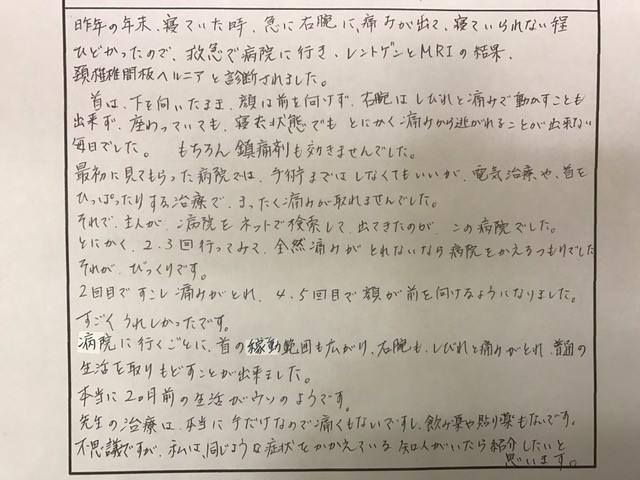 昨年の年末、寝ていた時、急に右腕に、痛みが出て、寝ていられない程
ひどかったので、救急で病院に行き、レントゲンとMRIの結果、
頚椎椎間板ヘルニアと診断されました。
首は、下を向いたまま、顔は前を向けず、右腕はしびれと痛みで動かすことも
出来ず、座わっていても、寝た状態でもとにかく痛みから逃がれることが出来ない
毎日でした。 もちろん鎮痛剤も効きませんでした。
最初に見てもらった病院では、手術まではしなくてもいいが、電気治療や、首を
ひっぱったりする治療で、まったく痛みが取れませんでした。
それで、主人が、病院をネットで検索して、出てきたのが、この病院でした。
とにかく、2.3回行ってみて、全然痛みがとれないなら病院をかえるつもりでした
それが、びっくりです。
2回目ですこし痛みがとれ、4.5回目で顔が前を向けるようになりました。
すごくうれしかったです。
病院に行くごとに、首の稼動範囲も広がり、右腕も、しびれと痛みがとれ、普通の
生活を取りもどすことが出来ました。
本当に2ヶ月前の生活がウソのようです。
先生の治療は、本当に手だけなので痛くもないですし、飲み薬や貼り薬もないです。
不思議ですが、私は、同じような症状をかかえている知人がいたら紹介したいと
思います。